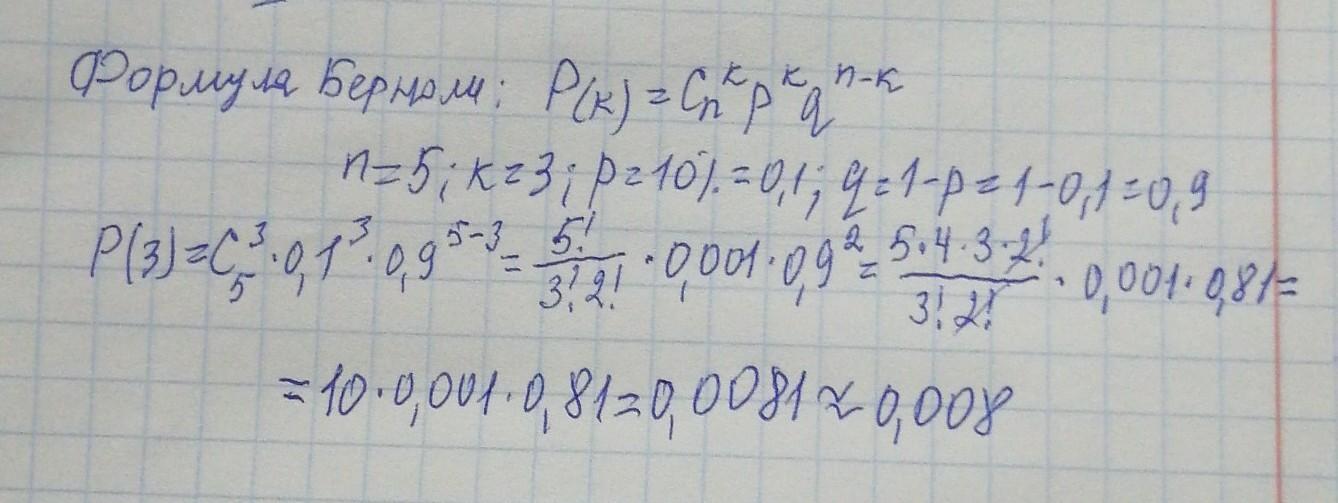 Формула Берноли: P(k) = C_n^k p^k q^{n-k}
n=5; k=3; p=10%=0,1; q=1-p=1-0,1=0,9
P(3)=C_5^3 · 0,1^3 · 0,9^{5-3} = 5!/(3!2!) · 0,001 · 0,9^2 = (5·4·3·2!)/(3!2!) · 0,001 · 0,81=
=10·0,001·0,81=0,0081≈0,008